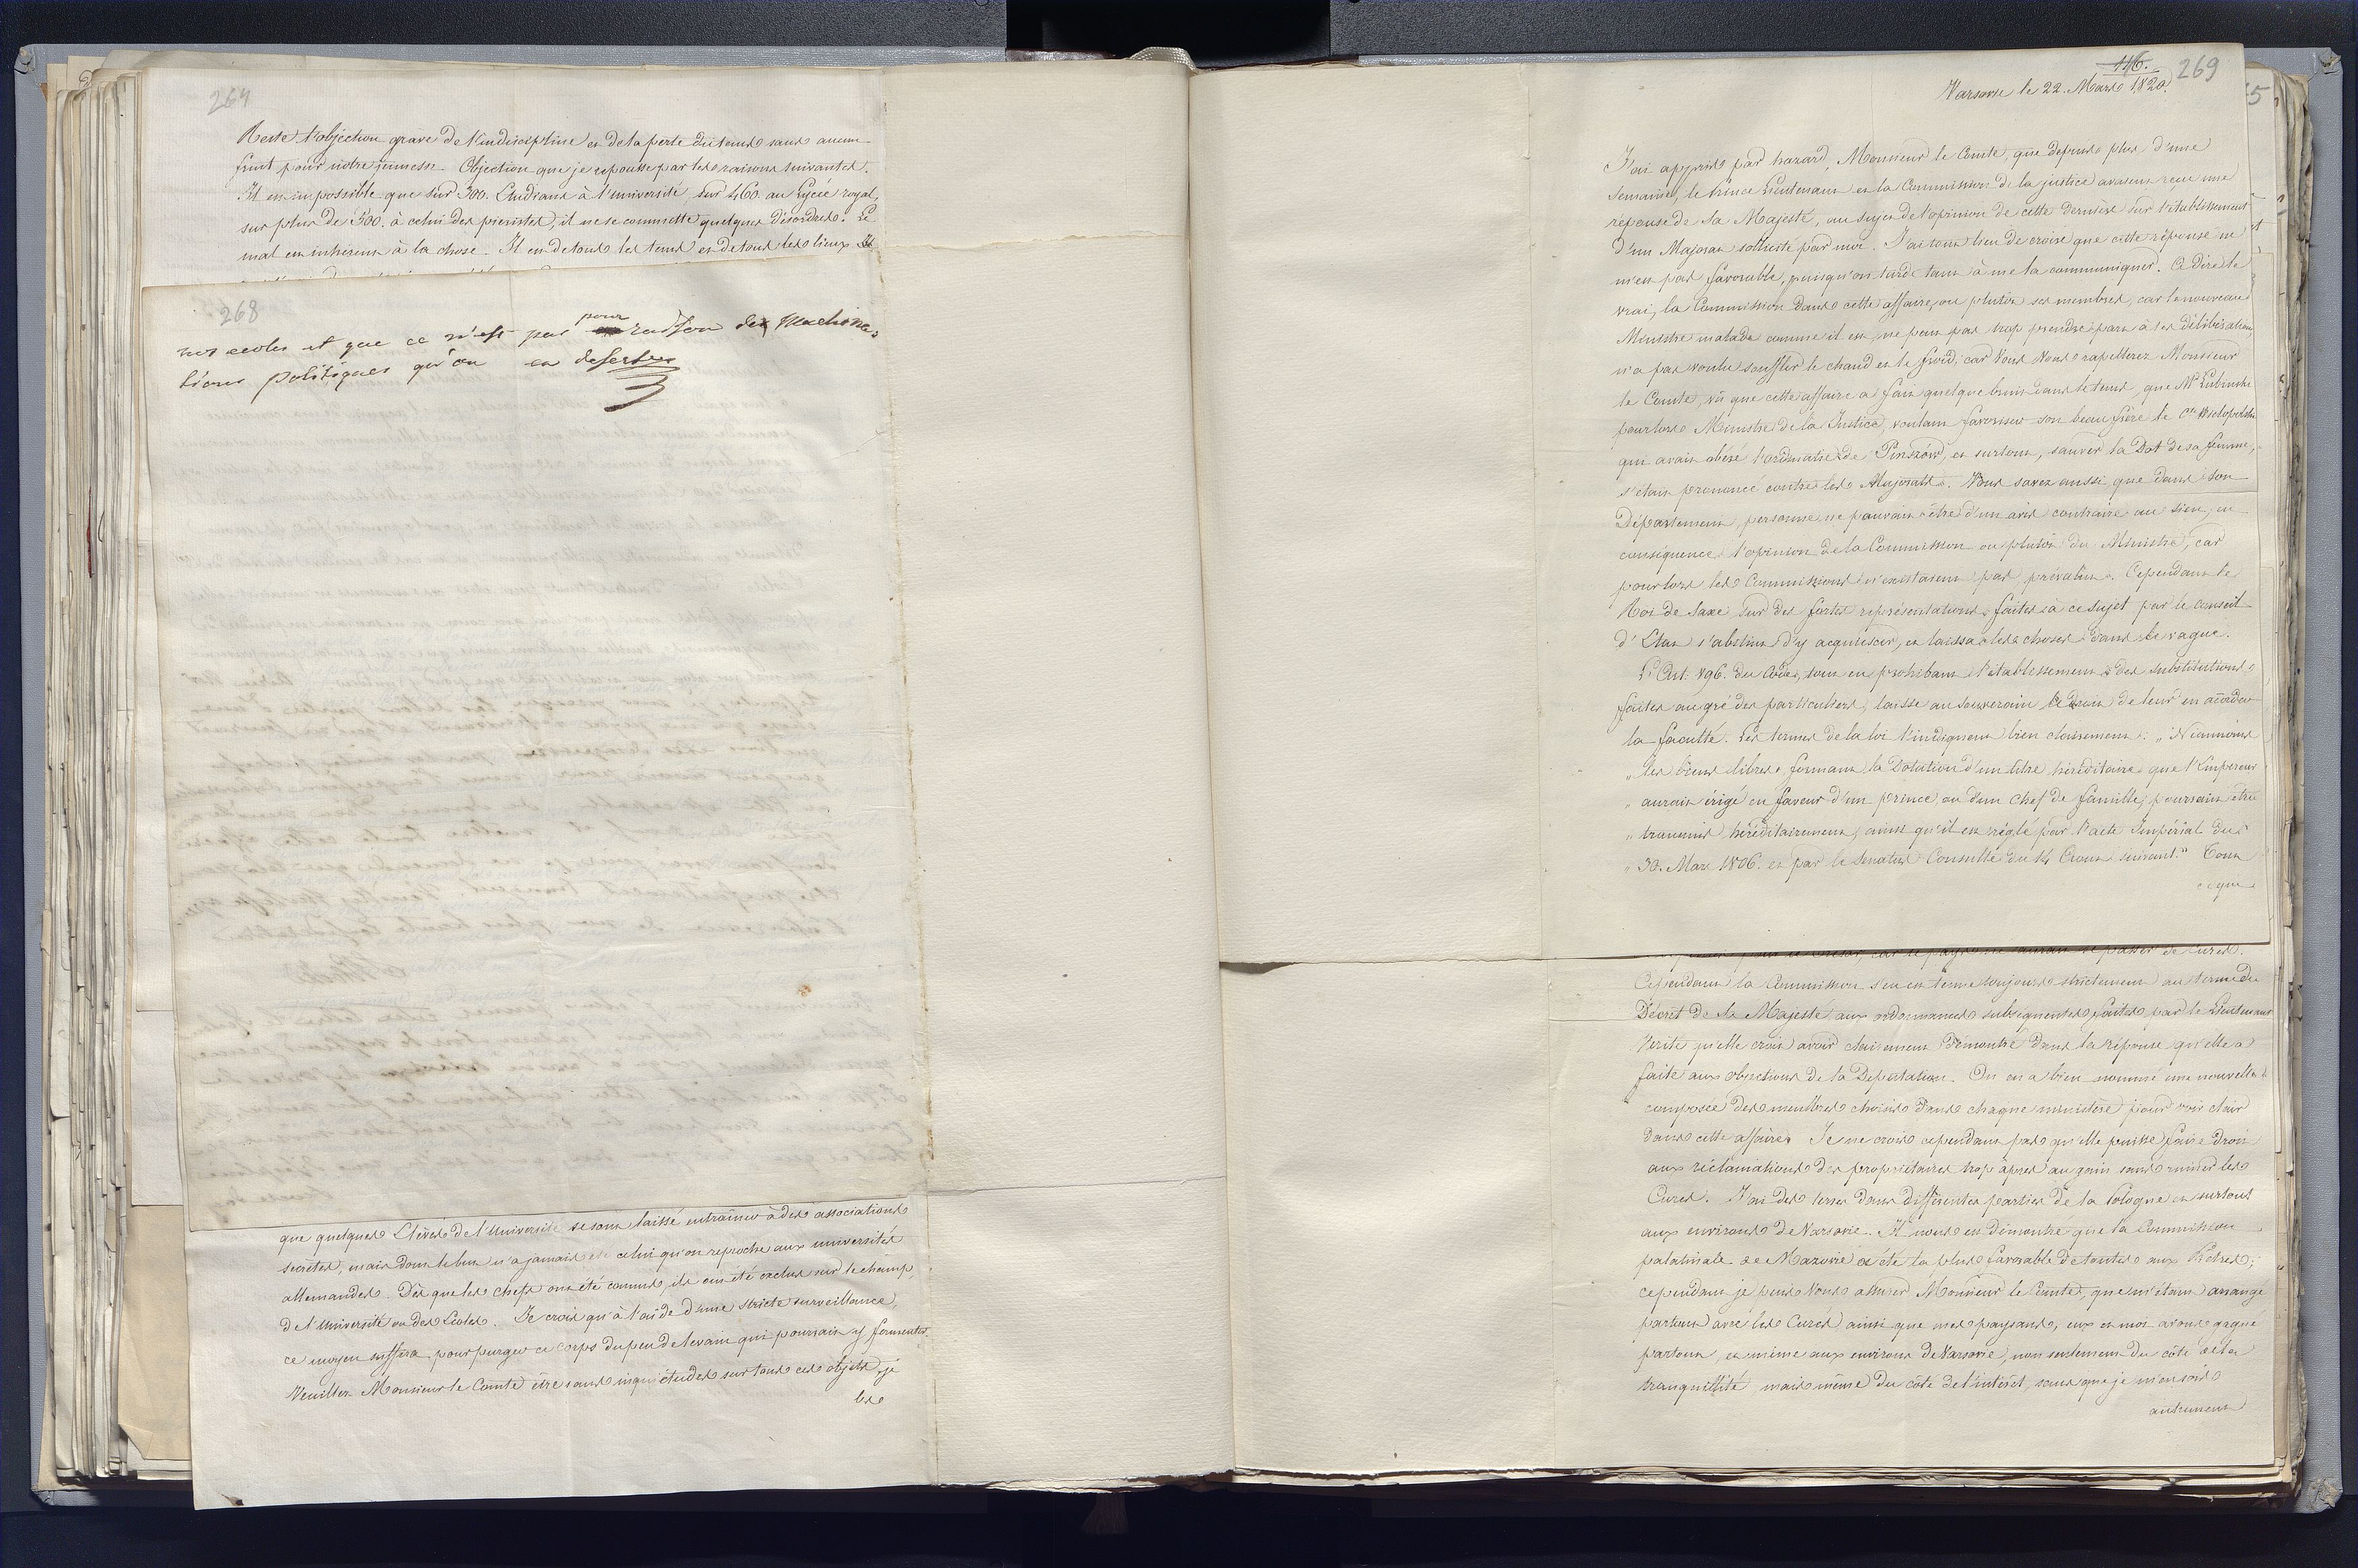 264
Reste l'objection grave de l'indiscipline et de la perte du tems sans aucun
fruit pour notre jeunesse. Objection que je repousse par les raisons suivantes.
Il est impossible que sur 300. Etudians à l'université, sur 460. au Lycée royal,
sur plus de 500. à celui des piaristes, il ne se committe quelques désordres. Le
mal est inhérent à la chose. Il est de tous les tems et de tous les lieux. Et
268
nos ecoles et que ce n'est pas pour raison des Machina,
tions politiques qu'on en deserte
que quelques Elèves de l'Université se sont laissé entrainer à des associations
secrètes, mais dont le but n'a jamais été celui qu'on reproche aux universités
allemandes. Dès que les chefs ont été connus, ils ont été exclus sur le champ,
de l'Université ou des Ecoles. Je crois qu'à l'aide d'une stricte surveillance,
ce moyen suffira pour purger ce corps du peu de levain qui pourrait y fermenter.
Veuillez Monsieur le Comte être sans inquiétudes sur tous ces objets, je
les
116.
269
Varsovie le 22. Mars 1820.
J'ai appris par hazard, Monsieur le Comte, que depuis plus d'une
semaine, le Prince Lieutenant et la Commission de la justice avaient reçu une
réponse de Sa Majesté, au sujet de l'opinion de cette dernière sur l'établissement
d'un Majorat sollicité par moi. J'ai tout lieu de croire que cette réponse ne
m'est pas favorable, puisqu'on tarde tant à me la communiquer. A dire le
vrai, la Commission dans cette affaire, ou plutôt ses membres, car le nouveau
Ministre malade comme il est, ne peut pas trop prendre part à ses délibérations,
n'a pas voulu souffler le chaud et le froid; car Vous Vous rapellerez Monsieur
le Comte, vû que cette affaire a fait quelque bruit dans le tems, que Mr Lubinski
pour lors Ministre de la Justice, voulant favoriser son beau frère le Cte Wielopolski
qui avait obéré l'ordinatie de Pinczów, et surtout, sauver la Dot de sa femme,
s'était prononcé contre les Majorats. Vous savez aussi que dans son
Département, personne ne pouvait être d'un avis contraire au sien, en
conséquence l'opinion de la Commission ou plutôt du Ministre, car
pour lors les Commissions n'existaient pas, prévalut. Cependant le
Roi de Saxe sur des fortes représentations faites à ce sujet par le conseil
d'Etat s'abstint d'y acquiescer, et laissa les choses dans le vague.
L'Art: 896. du Code, tout en prohibant l'établissement des substitutions
faites au gré des particuliers, laisse au souverain le droit de leur en accorder
la faculté. Les termes de la loi l'indiquent bien clairement: „ Néanmoins
„ les biens libres formant la Dotation d'un titre héréditaire que l'Empereur
„ aurait érigé en faveur d'un prince, ou d'un chef de famille, pourront être
„ transmis héréditairement, ainsi qu'il est réglé par l'acte Impérial du
„ 30. Mars 1806. et par le Senatus Consulte du 14 Aout suivant." Tout
ce que
Cependant la Commission s'en est tenue toujours strictement au terme du
Décret de Sa Majesté, aux ordonnances subséquentes faites par le Lieutenant
Verité qu'elle croit avoir clairement démontré dans la réponse qu'elle a
faite aux objections de la Députation. On en a bien nommé une nouvelle
composée des membres choisis dans chaque ministère pour voir clair
dans cette affaire. Je ne crois cependant pas qu'elle puisse faire droit
aux réclamations des propriétaires trop âpres au gain sans ruiner les
Curés. J'ai des terres dans différentes parties de la Pologne et surtout
aux environs de Varsovie. Il nous est démontré que la Commission
palatinale de Mazovie a été la plus favorable de toutes aux Prêtres;
cependant je puis Vous assurer Monsieur le Comte, que m'étant arrangé
partout avec les Curés ainsi que mes paysans, eux et moi avons gagné
partout, et même aux environs de Varsovie, non seulement du côté de la
tranquillité, mais même du côté de l'intérêt, sans que je m'en sois
autrement